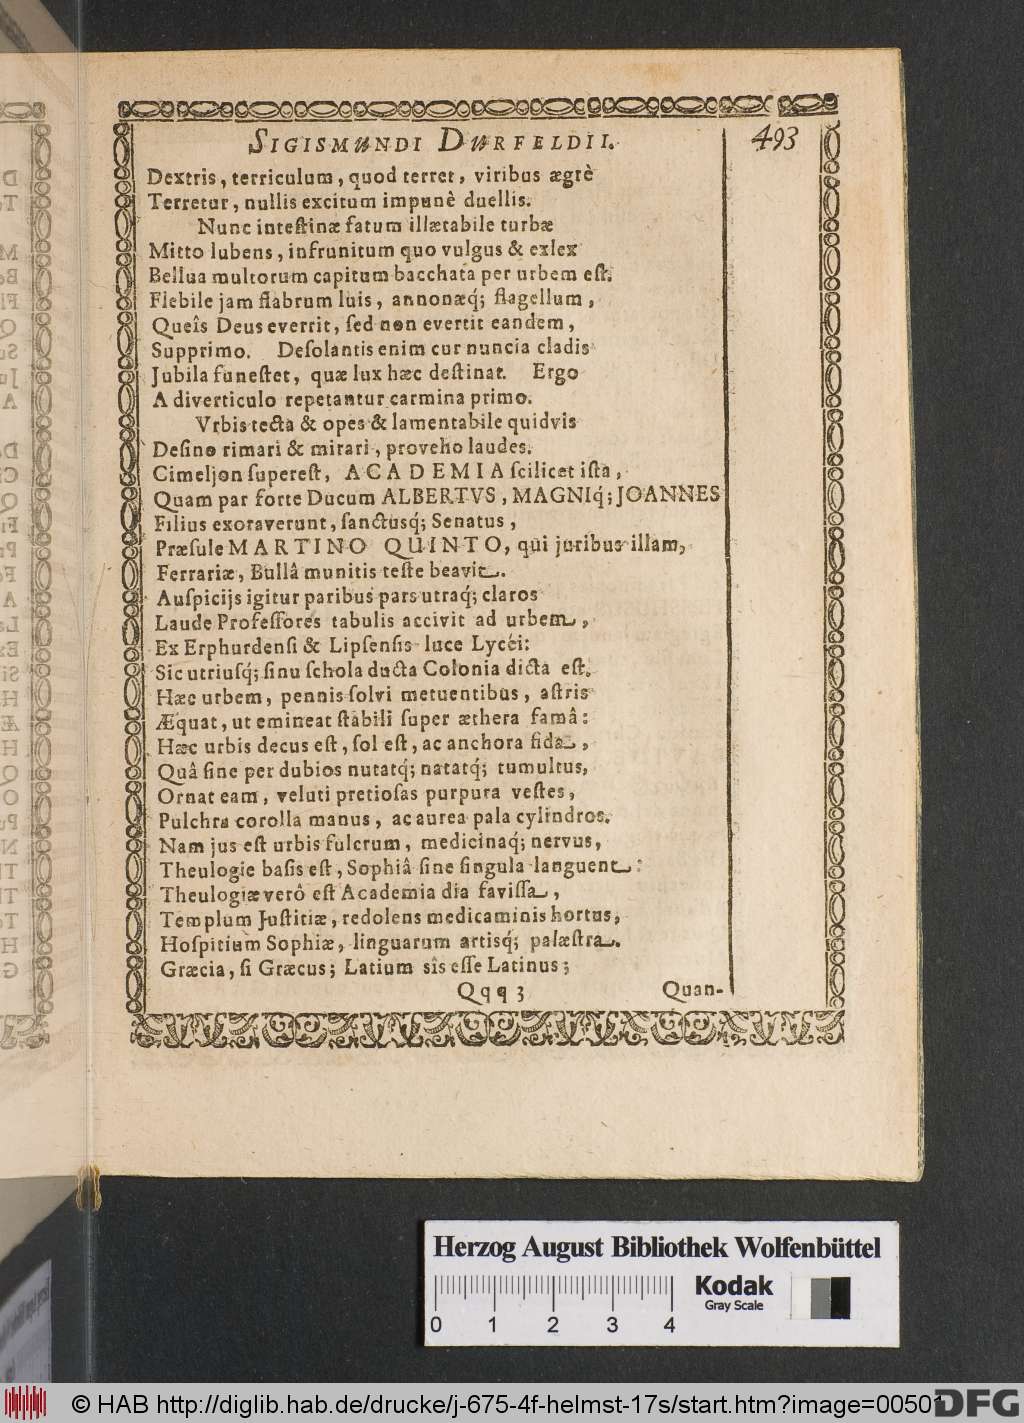 SIGISMUNDI DURFELDII. 493
Dextris, terriculum, quod terret, viribus ægrè
Terretur, nullis excitum impunè duellis.
Nunc inteſtinæ fatum illætabile turbæ
Mitto lubens, infrunitum quo vulgus & exlex
Bellua multorum capitum bacchata per urbem eſt.
Flebile jam flabrum luis, annonæq́; flagellum,
Queîs Deus everrit, ſed non evertit eandem,
Supprimo. Deſolantis enim cur nuncia cladis
Jubila funeſtet, quæ lux hæc deſtinat. Ergo
A diverticulo repetantur carmina primo.
Vrbis tecta & opes & lamentabile quidvis
Deſino rimari & mirari, proveho laudes.
Cimeljon ſupereſt, ACADEMIA ſcilicet iſta,
Quam par forte Ducum ALBERTVS, MAGNIq́; JOANNES
Filius exoraverunt, ſanctusq́; Senatus,
Præſule MARTINO QUINTO, qui juribus illam,
Ferrariæ, Bullâ munitis teſte beavit.
Auſpicijs igitur paribus pars utraq́; claros
Laude Profeſſores tabulis accivit ad urbem,
Ex Erphurdenſi & Lipſenſis luce Lycéi:
Sic utriusq́; ſinu ſchola ducta Colonia dicta eſt.
Hæc urbem, pennis ſolvi metuentibus, aſtris
Æquat, ut emineat ſtabili ſuper æthera famâ:
Hæc urbis decus eſt, ſol eſt, ac anchora fida,
Quâ ſine per dubios nutatq́; natatq́; tumultus,
Ornat eam, veluti pretioſas purpura veſtes,
Pulchra corolla manus, ac aurea pala cylindros.
Nam jus eſt urbis fulcrum, medicinaq́; nervus,
Theulogie baſis eſt, Sophiâ ſine ſingula languent:
Theulogiæ verô eſt Academia dia faviſſa,
Templum Juſtitiæ, redolens medicaminis hortus,
Hoſpitium Sophiæ, linguarum artisq́; palæſtra.
Græcia, ſi Græcus; Latium sîs eſſe Latinus;
Qqq 3 Quan-
Herzog August Bibliothek Wolfenbüttel
Kodak
Gray Scale
0 1 2 3 4
© HAB http://diglib.hab.de/drucke/j-675-4f-helmst-17s/start.htm?image=00501
DFG